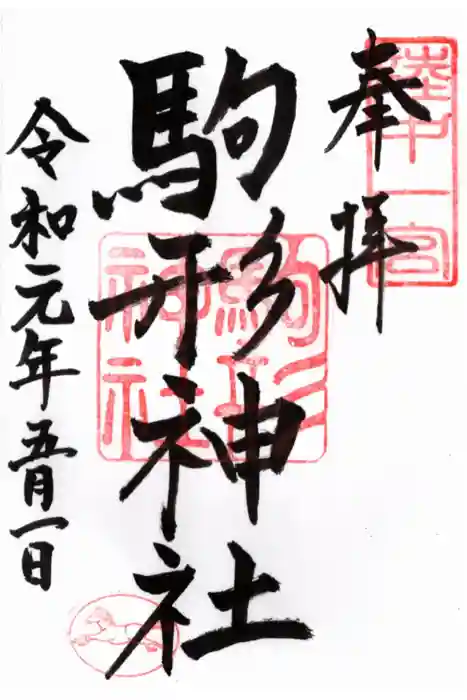 奉拝
陸中一宮
駒形神社
駒形神社
令和元年五月一日